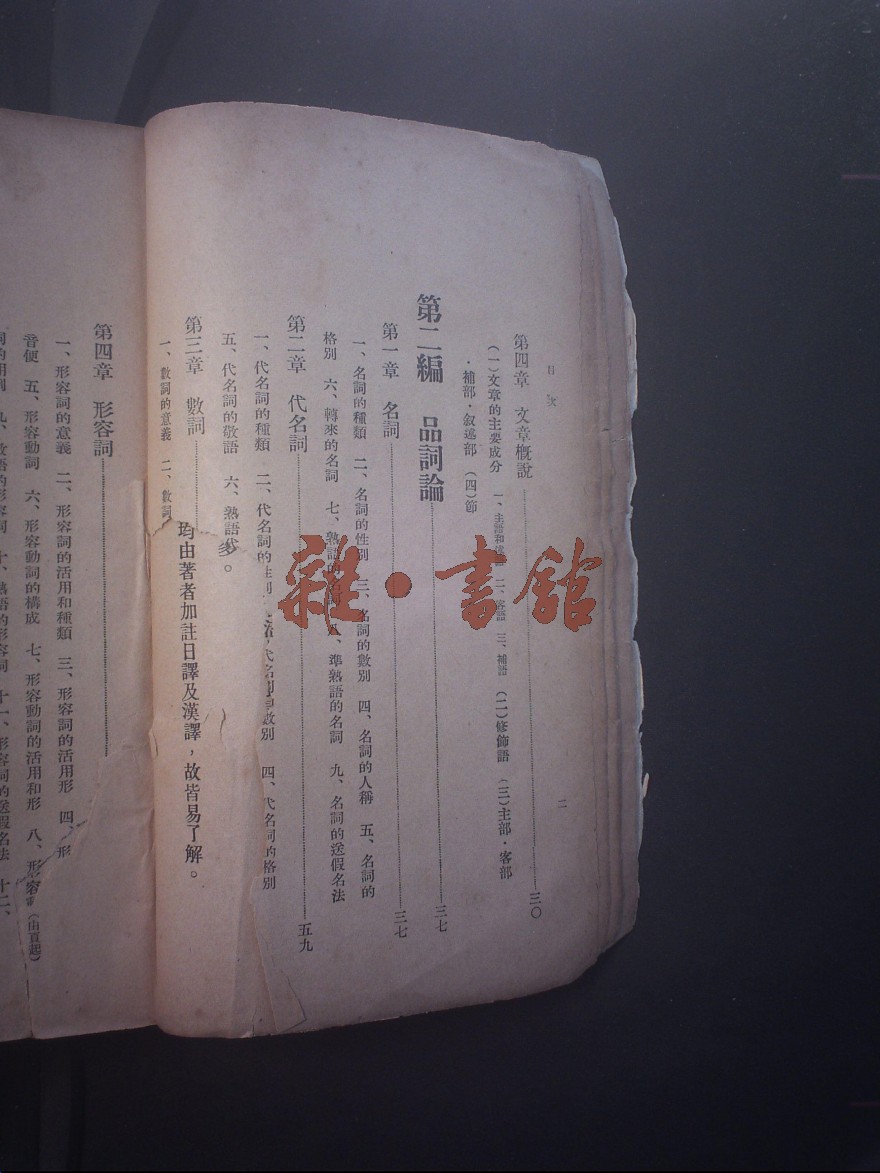 目次
二
第四章 文章概說……三〇
(一)文章的主要成分 一、主語和述語 二、客語 三、補語 (二)修飾語 (三)主部・客部
・補部・叙述部 (四)節
第二編 品詞論……三七
第一章 名詞……三七
一、名詞的種類 二、名詞的性別 三、名詞的數別 四、名詞的人稱 五、名詞的
格別 六、轉來的名詞 七、熟語的名詞 八、準熟語的名詞 九、名詞的送假名法
第二章 代名詞……五九
一、代名詞的種類 二、代名詞的性別 代名 數別 四、代名詞的格別
五、代名詞的敬語 六、熟語代
多。
第三章 數詞
均由著者加註日譯及漢譯，故皆易了解。
一、數詞的意義 二、數詞
第四章 形容詞
一、形容詞的意義 二、形容詞的活用和種類 三、形容詞的活用形 四、形
音便 五、形容動詞 六、形容動詞的構成 七、形容動詞的活用和形 八、形容
(由頁起)
詞的用別 九、敬語的形容詞 十、熟語的形容詞 十一、形容詞的送假名法 十二、
雜・書館